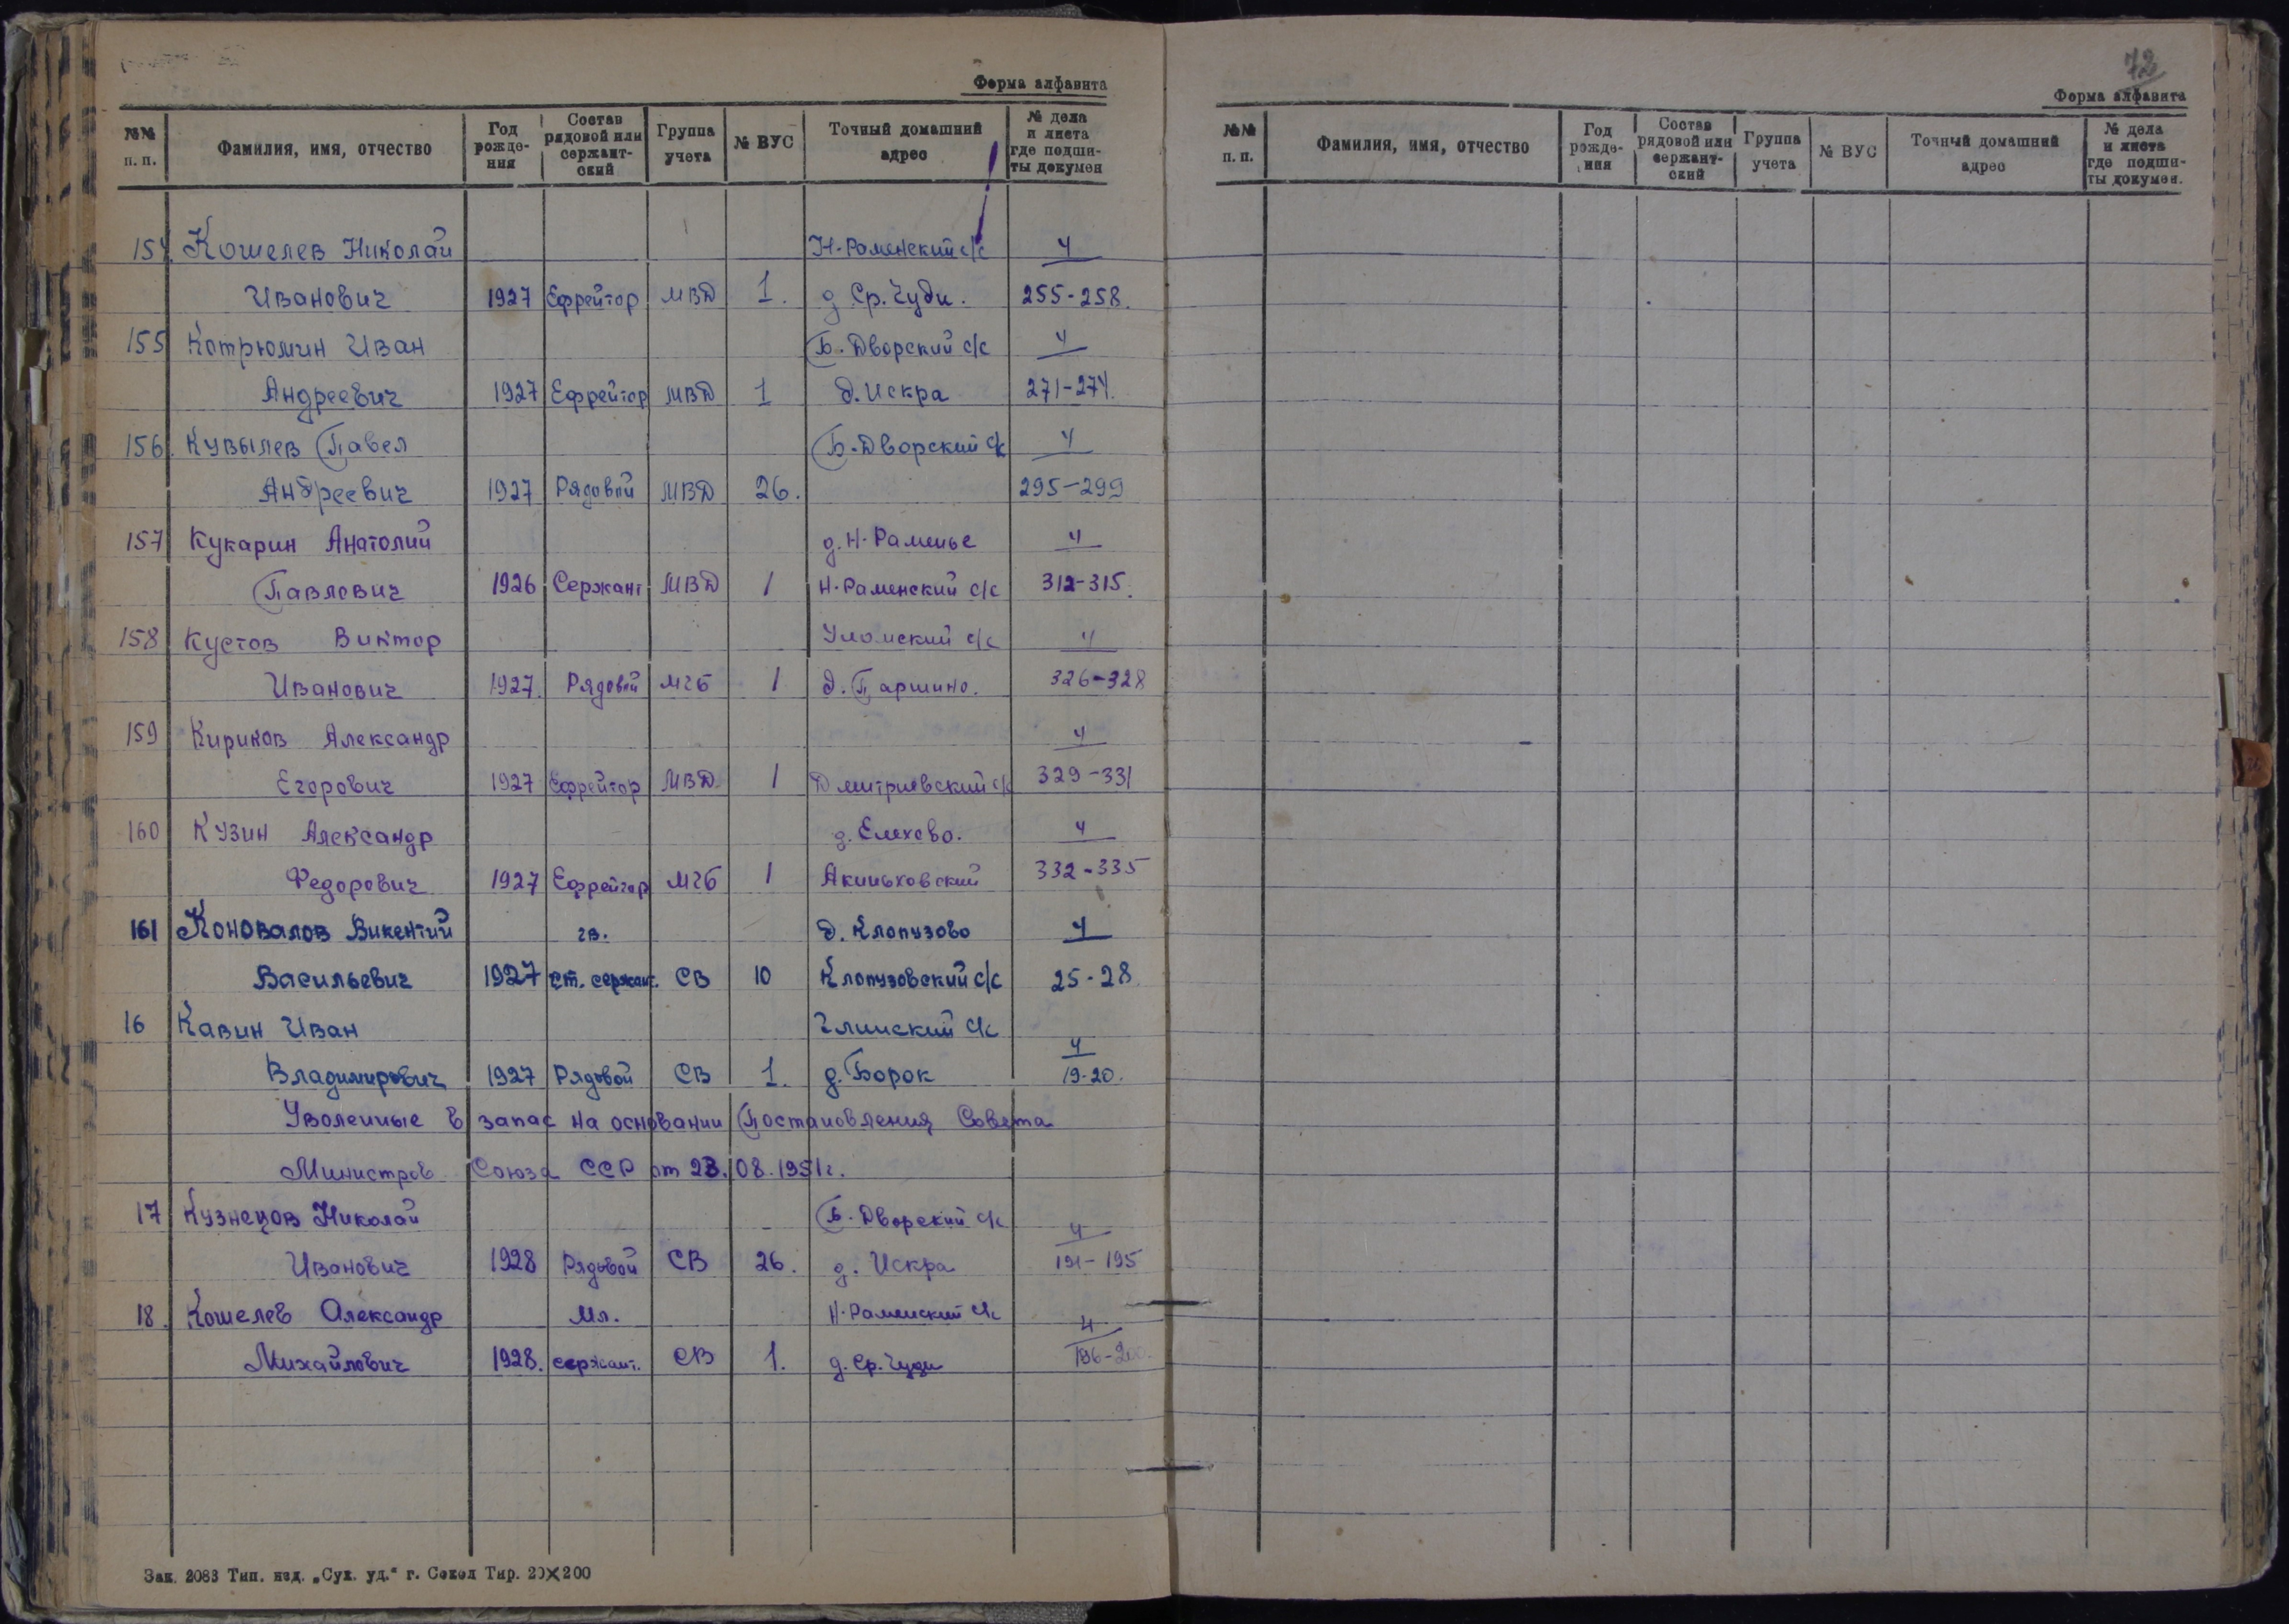 Форма алфавита
№№ п. п. Фамилия, имя, отчество Год рожде-ния Состав рядовой или сержант-ский Группа учета № ВУС Точный домашний адрес № дела и листа где подши-ты докумен
154. Кошелев Николай Н-Раменский с/с 4
Иванович 1927 Ефрейтор МВД 1. д Ср. Чуди. 255-258.
155 Котрюмин Иван Б. Дворский с/с 4
Андреевич 1927 Ефрейтор МВД 1 д. Искра 271-274.
156. Кувылев Павел Б. Дворский с/с 4
Андреевич 1927 Рядовой МВД 26. 295-299
157 Кукарин Анатолий д. Н-Раменье 4
Павлович 1926 Сержант МВД 1 Н-Раменский с/с 312-315.
158 Кустов Виктор Уломский с/с 4
Иванович 1927. Рядовой МГБ 1 д. Паршино. 326-328
159 Кириков Александр 4
Егорович 1927 Ефрейтор МВД 1 Дмитриевский с/с 329-331
160 Кузин Александр д. Елехово. 4
Федорович 1927 Ефрейтор МГБ 1 Акиньховский 332-335
161 Коновалов Викентий гв. д. Клопузово 4
Васильевич 1927 ст. сержант. СВ 10 Клопузовский с/с 25-28
16 Кавин Иван Глинский с/с 4
Владимирович 1927 Рядовой СВ 1. д. Борок 19-20.
Уволенные в запас на основании Постановления Совета
Министров Союза ССР от 23.08.1951г.
17 Кузнецов Николай Б. Дворский с/с 4
Иванович 1928 Рядовой СВ 26. д. Искра 191-195
18. Кошелев Александр Мл. Н-Раменский с/с 4
Михайлович 1928. сержант. СВ 1. д. Ср. Чуди 196-200.
Зак. 2083 Тип. изд. „Сух. уд.“ г. Сокол Тир. 20×200
72
Форма алфавита
№№ п. п. Фамилия, имя, отчество Год рожде-ния Состав рядовой или сержант-ский Группа учета № ВУС Точный домашний адрес № дела и листа где подши-ты докумен.